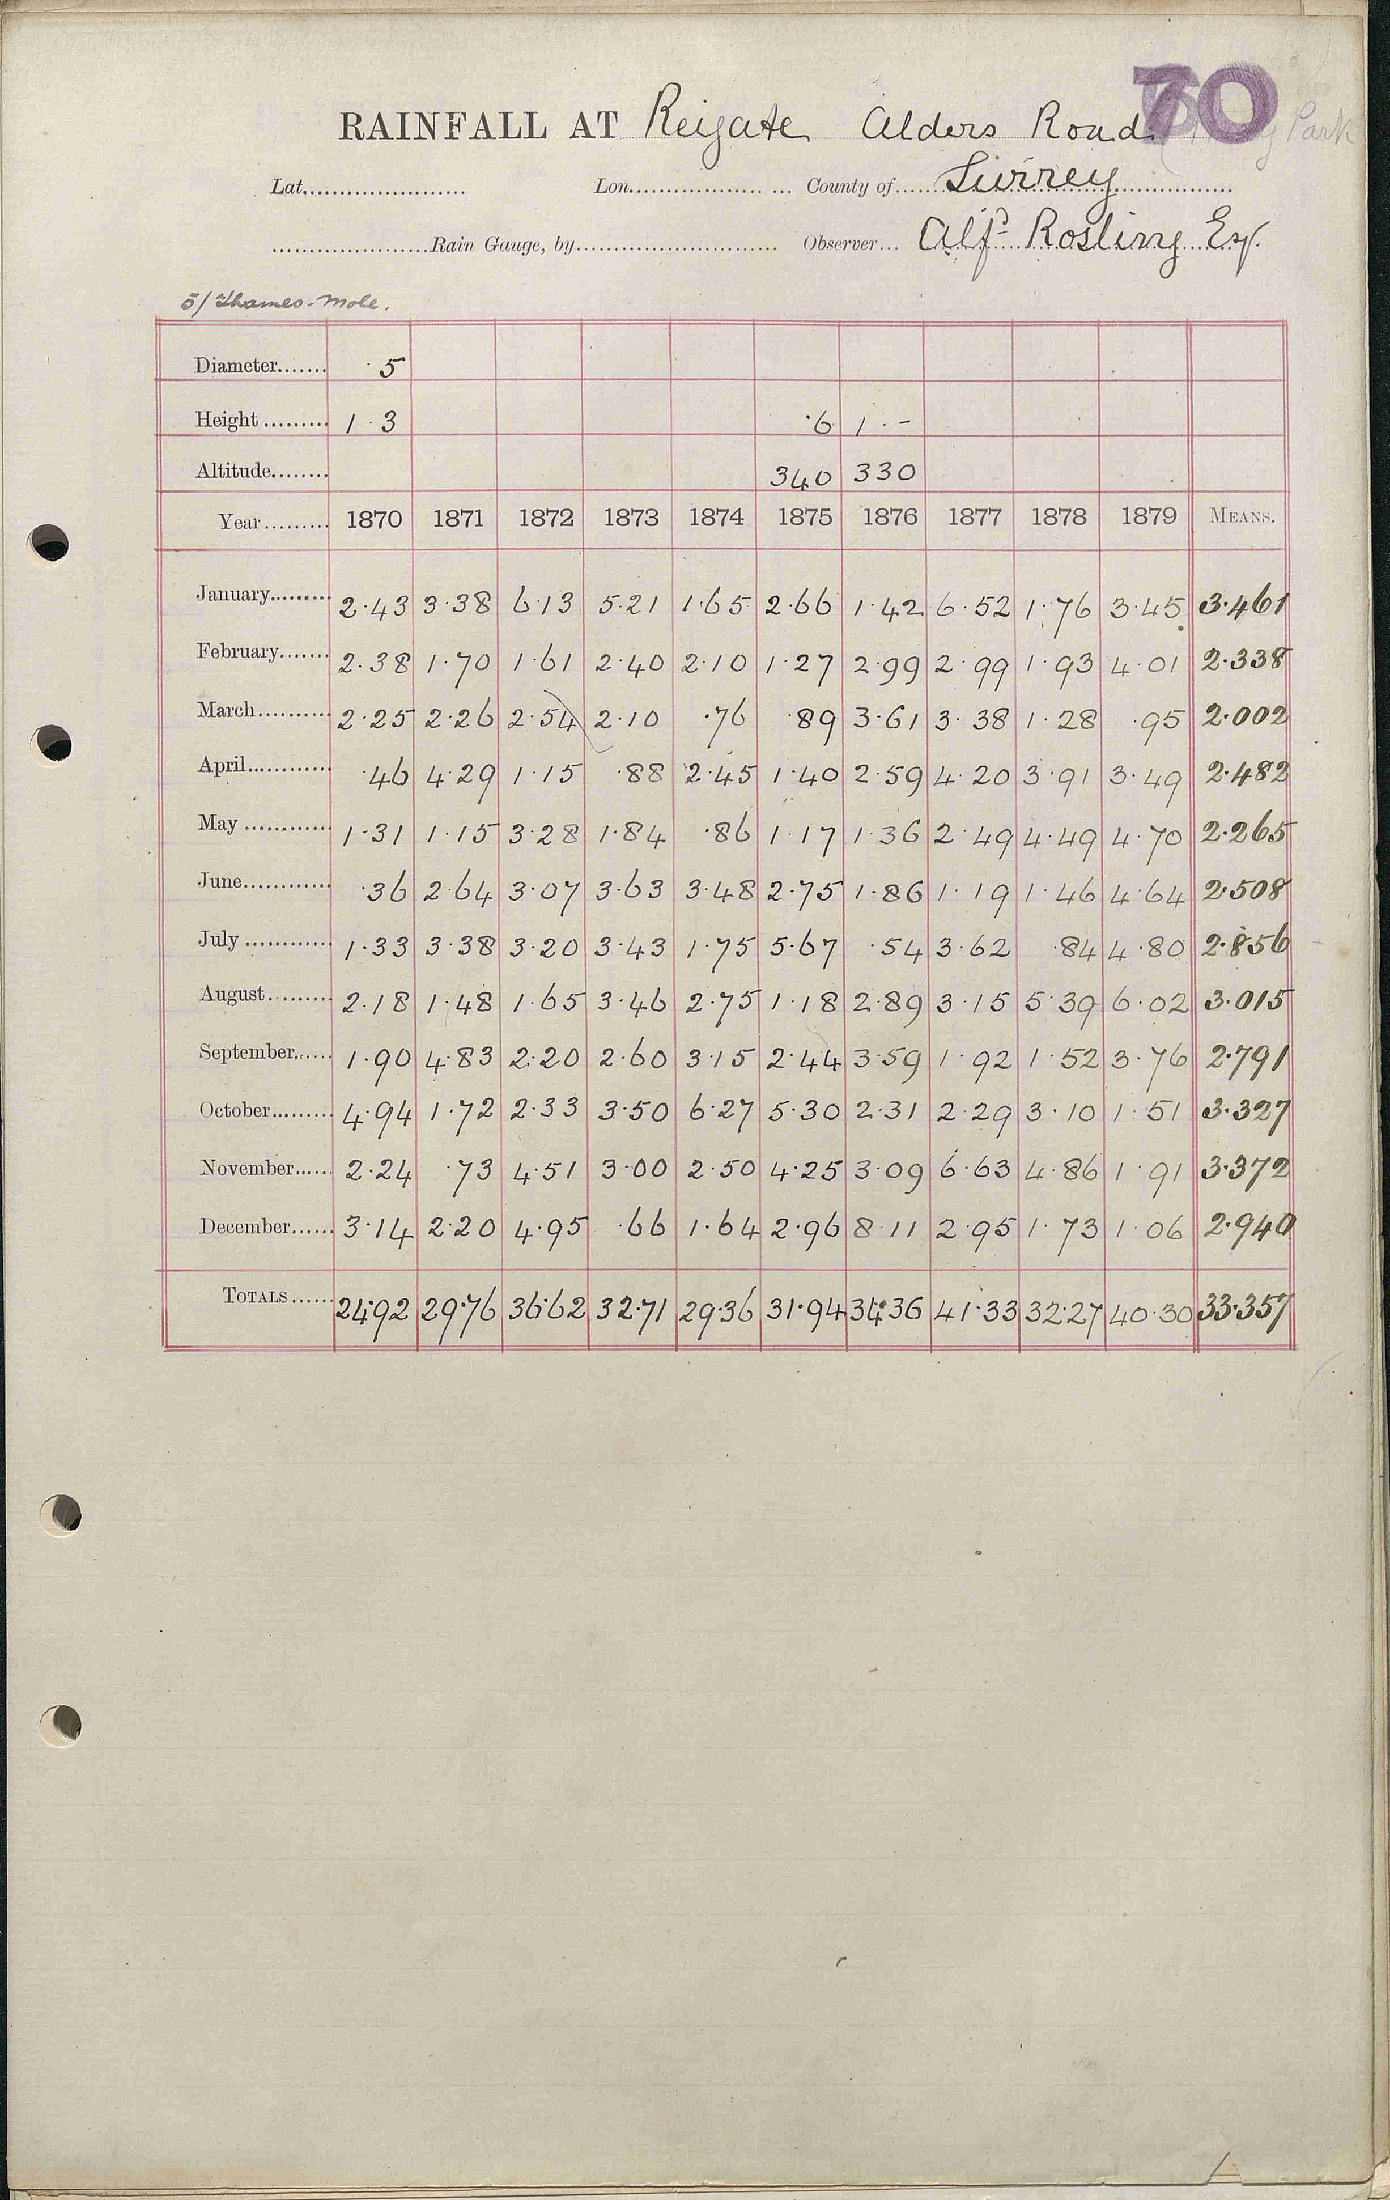 70
RAINFALL AT Reigate Alders Road Park
Lat. Lon. County of Surrey
Rain Gauge, by Observer Alfd Rosling Esq.
5/ Thames-Mole.
Diameter ·5
Height 1·3 ·6 1·-
Altitude 340 330
Year 1870 1871 1872 1873 1874 1875 1876 1877 1878 1879 MEANS.
January 2·43 3·38 6·13 5·21 1·65 2·66 1·42 6·52 1·76 3·45 3·461
February 2·38 1·70 1·61 2·40 2·10 1·27 2·99 2·99 1·93 4·01 2·338
March 2·25 2·26 2·54 2·10 ·76 ·89 3·61 3·38 1·28 ·95 2·002
April ·46 4·29 1·15 ·88 2·45 1·40 2·59 4·20 3·91 3·49 2·482
May 1·31 1·15 3·28 1·84 ·86 1·17 1·36 2·49 4·49 4·70 2·265
June ·36 2·64 3·07 3·63 3·48 2·75 1·86 1·19 1·46 4·64 2·508
July 1·33 3·38 3·20 3·43 1·75 5·67 ·54 3·62 ·84 4·80 2·856
August 2·18 1·48 1·65 3·46 2·75 1·18 2·89 3·15 5·39 6·02 3·015
September 1·90 4·83 2·20 2·60 3·15 2·44 3·59 1·92 1·52 3·76 2·791
October 4·94 1·72 2·33 3·50 6·27 5·30 2·31 2·29 3·10 1·51 3·327
November 2·24 ·73 4·51 3·00 2·50 4·25 3·09 6·63 4·86 1·91 3·372
December 3·14 2·20 4·95 ·66 1·64 2·96 8·11 2·95 1·73 1·06 2·940
TOTALS 24·92 29·76 36·62 32·71 29·36 31·94 34·36 41·33 32·27 40·30 33·357